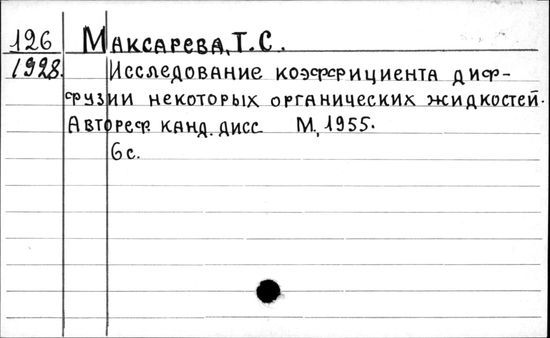 126 Максарева, Т. С.
1928. Исследование коэффициента диф-
фузии некоторых органических жидкостей.
Автореф. канд. дисс М, 1955.
6 с.